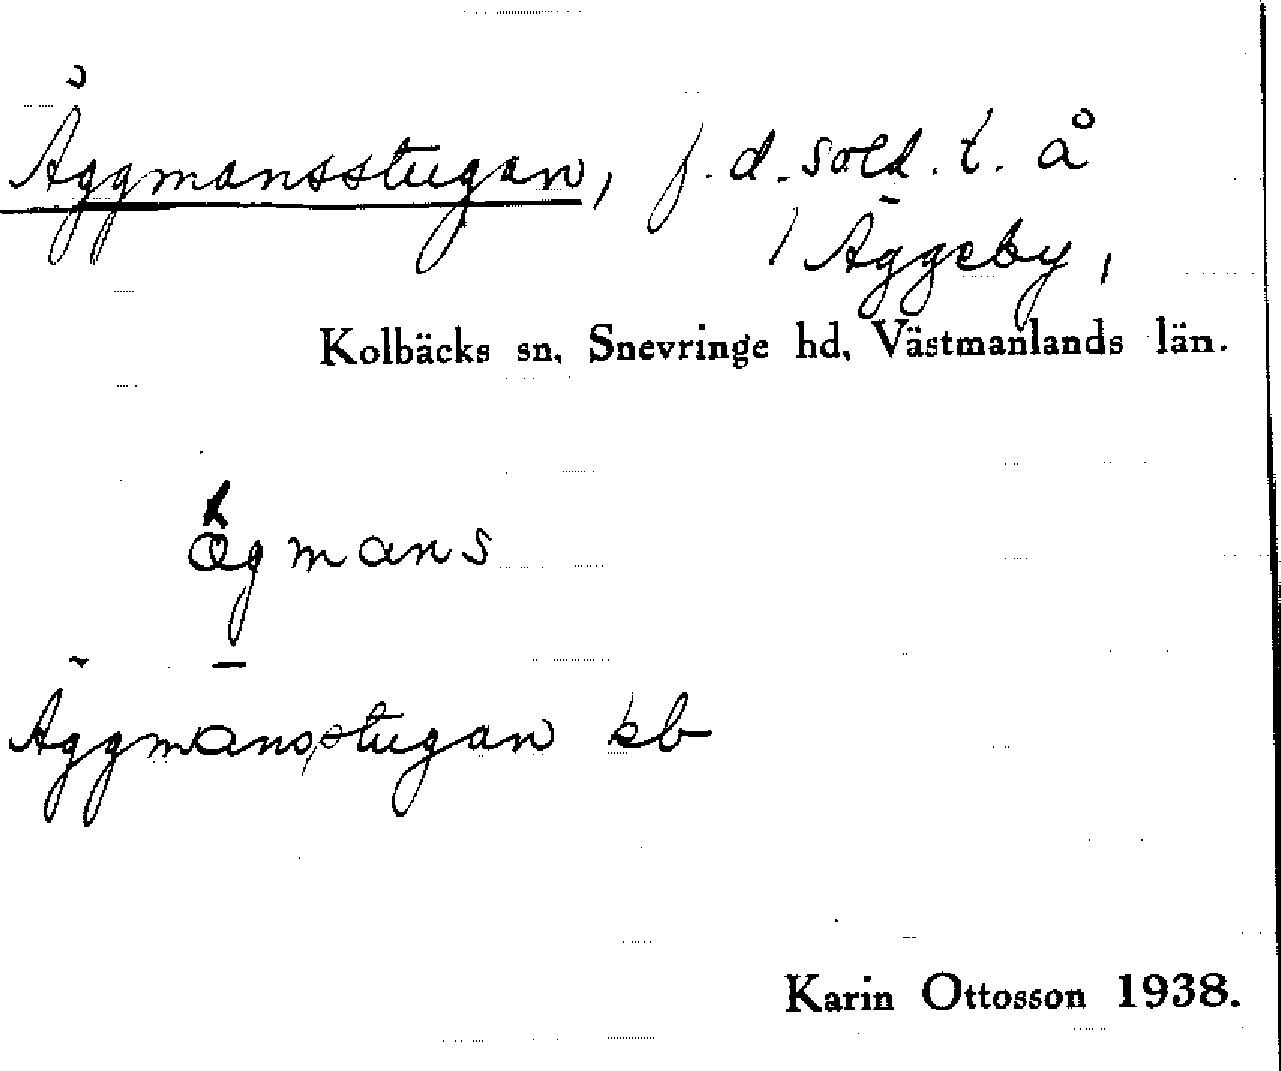 Äggmansstugan, f.d. sold. t. å
Äggeby,
Kolbäcks sn, Snevringe hd, Västmanlands län.
ägmans
Äggmansstugan kb
Karin Ottosson 1938.